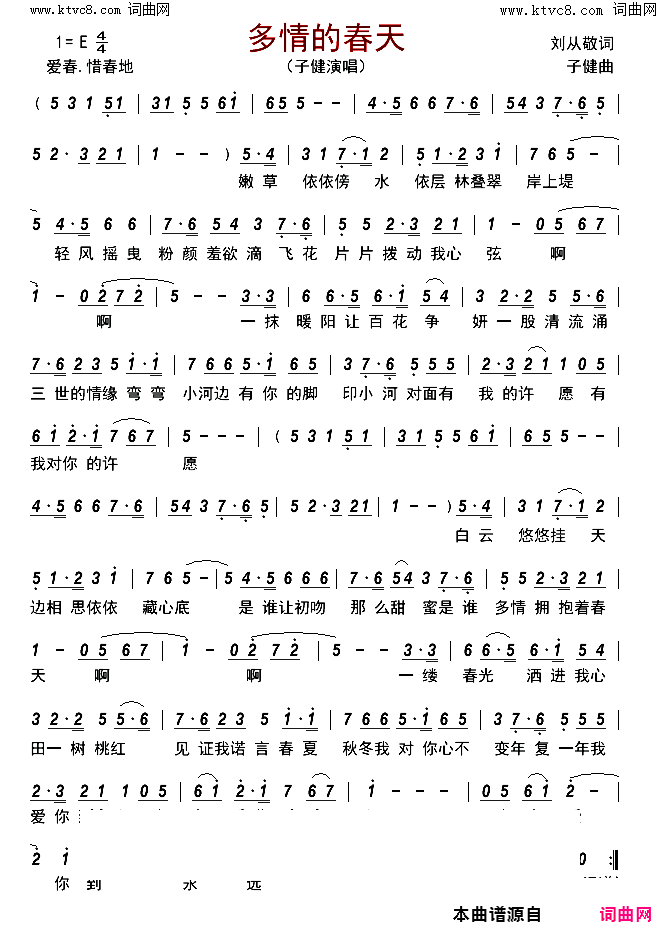 www.ktvc8.com 词曲网
www.ktvc8.com 词曲网
多情的春天
1=E 4/4
刘从敬词
爱春.惜春地
（子健演唱）
子健曲
( 5 3 1 51 | 31 5 5 61 | 65 5 - - | 4·5 6 6 7·6 | 54 3 7·6 5 |
5 2·3 21 | 1 - - ) 5·4 | 3 1 7·1 2 | 51·23 1 | 7 6 5 - |
嫩草 依依傍 水 依层林叠翠 岸上堤
5 4·5 6 6 | 7·6 5 4 3 7·6 | 5 5 2·3 21 | 1 - 05 67 |
轻风摇曳 粉颜羞欲滴 飞花 片片拨动我心 弦 啊
1 - 02 72 | 5 - - 3·3 | 6 6·5 6·1 54 | 3 2·2 5 5·6 |
啊 一抹 暖阳让百花争 妍一股清流涌
7·6 2 3 5 1·1 | 7 6 5 5·1 6 5 | 3 7·6 5 55 | 2 2·3 21 1 05 |
三世的情缘弯弯 小河边有你的脚 印小河对面有 我的许愿有
61 2·1 7 67 | 5 - - - | ( 5 3 1 51 | 31 5 5 61 | 65 5 - - |
我对你的许 愿
4·5 6 6 7·6 | 54 3 7·6 5 | 5 2·3 21 | 1 - - ) 5·4 | 3 1 7·1 2 |
白云 悠悠挂 天
51·23 1 | 7 6 5 - | 54 5 6 6 6 | 7·6 54 3 7·6 | 5 5 2·3 21 |
边相思依依 藏心底 是谁让初吻 那么甜蜜是谁 多情拥抱着春
1 - 05 67 | 1 - 02 72 | 5 - - 3·3 | 6 6·5 6·1 54 |
天 啊 啊 一缕 春光 洒进我心
3 2·2 5 5·6 | 7·6 2 3 5 1·1 | 7 6 5 5·1 6 5 | 3 7·6 5 55 |
田一树桃红 见证我诺言春夏 秋冬我对你心不 变年复一年我
2·3 21 1 05 | 61 2·1 7 67 | 1 - - - | 05 61 2 - |
爱你
2 1 0 :|
你到 永远
本曲谱源自 词曲网